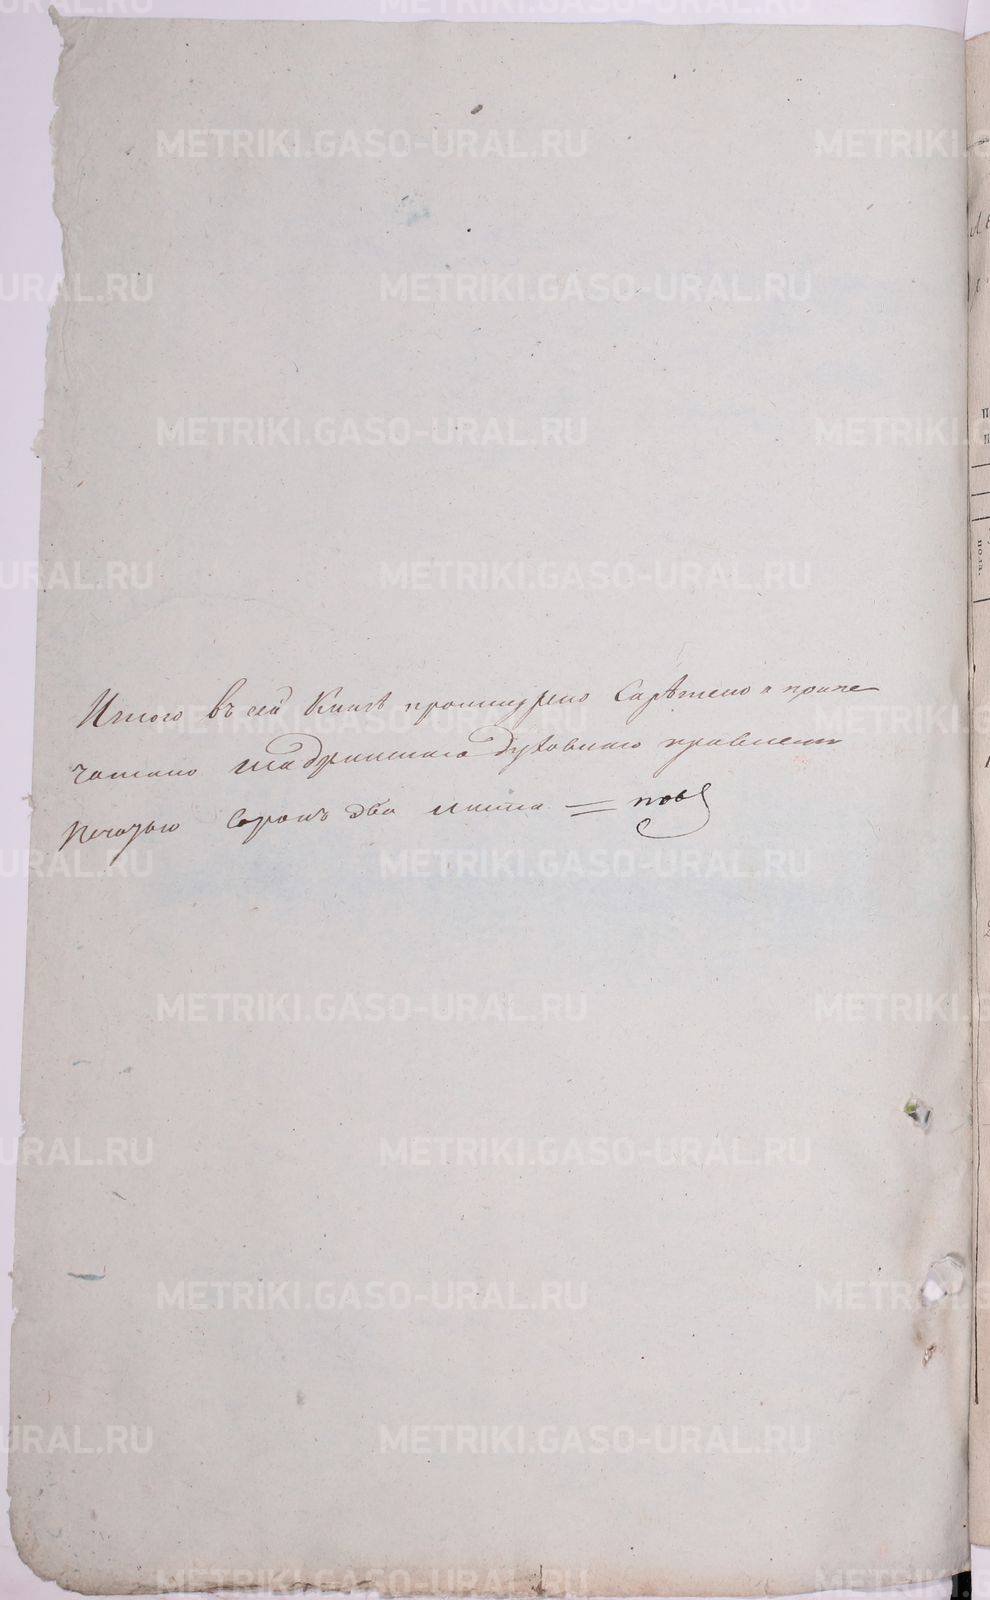 Итого въ сей Книгѣ прошнурено Скрѣплено и припе
чатано Шадринскаго Духовнаго правленія
печатью Сорокъ два листа =
METRIKI.GASO-URAL.RU